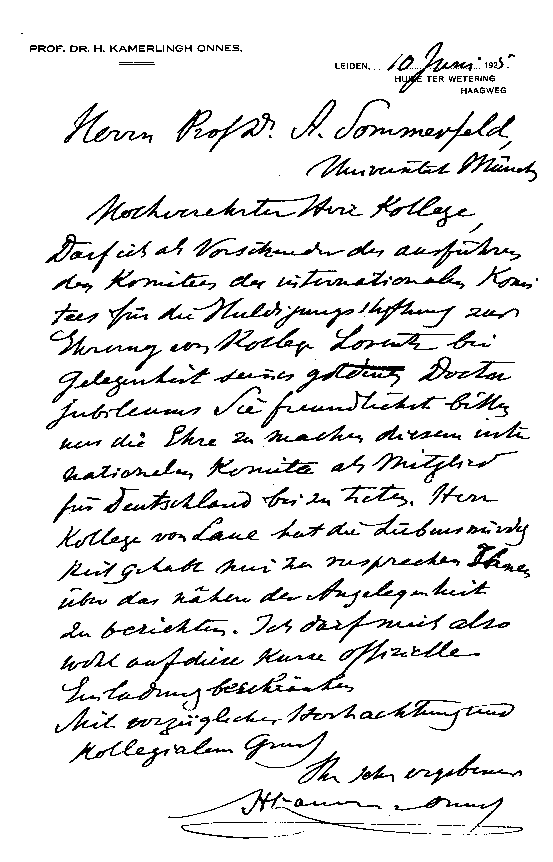 PROF. DR. H. KAMERLINGH ONNES.
LEIDEN, 10 Juni 1925.
HUIZE TER WETERING
HAAGWEG
Herrn Prof Dr. A. Sommerfeld,
Universität Münch
Hochverehrter Herr Kollege,
Darf ich als Vorsitzender des ausführen
den Komitees des internationalen Komi
tees für die Huldigungsstiftung zur
Ehrung von Kollege Lorentz bei
Gelegenheit seines goldenen Doctor
jubileums Sie freundlichst bitten
uns die Ehre zu machen diesem inter
nationalen Komitee als Mitglied
für Deutschland bei zu treten. Herr
Kollege von Laue hat die Liebenswürdig
keit gehabt mir zu versprechen Ihnen
über das nähere der Angelegenheit
zu berichten. Ich darf mich also
wohl auf diese kurze offizielle
Einladung beschränken
Mit vorzüglicher Hochachtung und
Kollegialem Gruss
Ihr sehr ergebener
H Kamerlingh Onnes